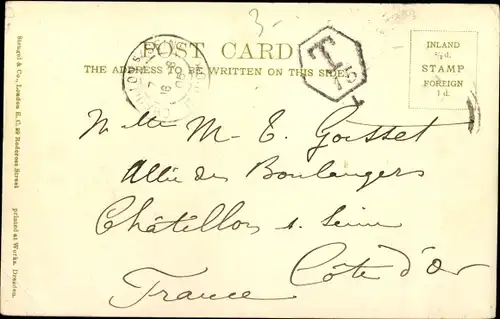 3-
POST CARD
THE ADDRESS TO BE WRITTEN ON THIS SIDE
INLAND
½d.
STAMP
FOREIGN
1d.
T
15
Melle M. E. Gosset
Allée des Boulangers
Châtillon s. Seine
Côte d'Or
France
Stengel & Co., London E. C. 39 Redcross Street
printed at Works, Dresden.